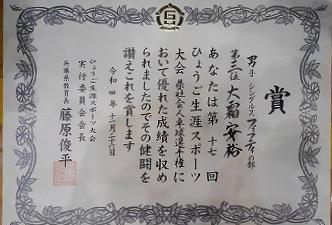 賞
男子 シングルス フィフティの部
第三位 大霜安裕
あなたは第十七回
ひょうご生涯スポーツ
大会 県社会人卓球選手権に
おいて優れた成績を収め
られましたのでその健闘を
讃えこれを賞します
令和四年十一月二十六日
ひょうご生涯スポーツ大会
実行委員会会長
兵庫県教育長 藤原俊平